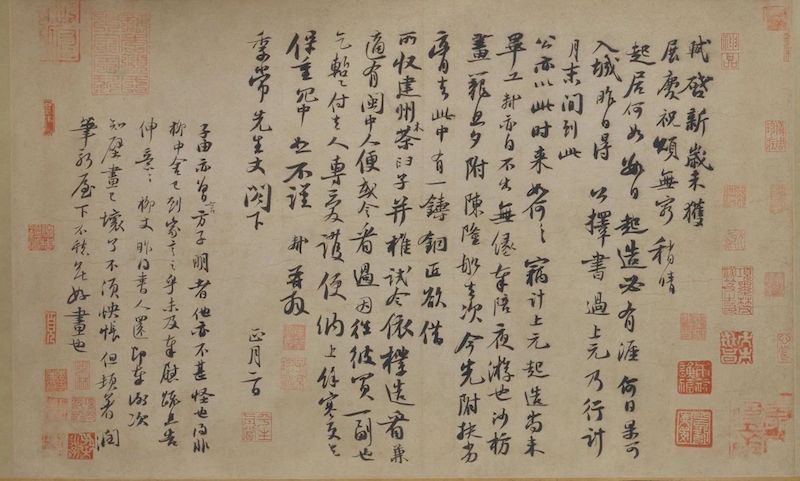 軾啓新歲未獲
展慶祝頌無窮稍晴
起居何如數日起造必有涯何日果可
入城昨日得公擇書過上元乃行計
月末間到此
公亦以此時來如何〻竊計上元起造尚未
畢工軾亦自不出無緣奉陪夜遊也沙枋
畫籠旦夕附陳隆船去次今先附扶劣
膏去此中有一鑄銅匠欲借
所收建州木茶臼子并椎試令依樣造看兼
適有閩中人便或令看過因往彼買一副也
乞暫付去人專愛護便納上餘寒更乞
保重冗中恕不謹軾再拜
季常先生丈閣下
正月二日
子由亦曾言方子明者他亦不甚怪也得非
柳中舍已到家言之乎未及奉慰疏且告
伸意〻柳丈昨得書人還即奉謝次
知壁畫已壞了不須怏悵但頓著潤
筆新屋下不愁無好畫也